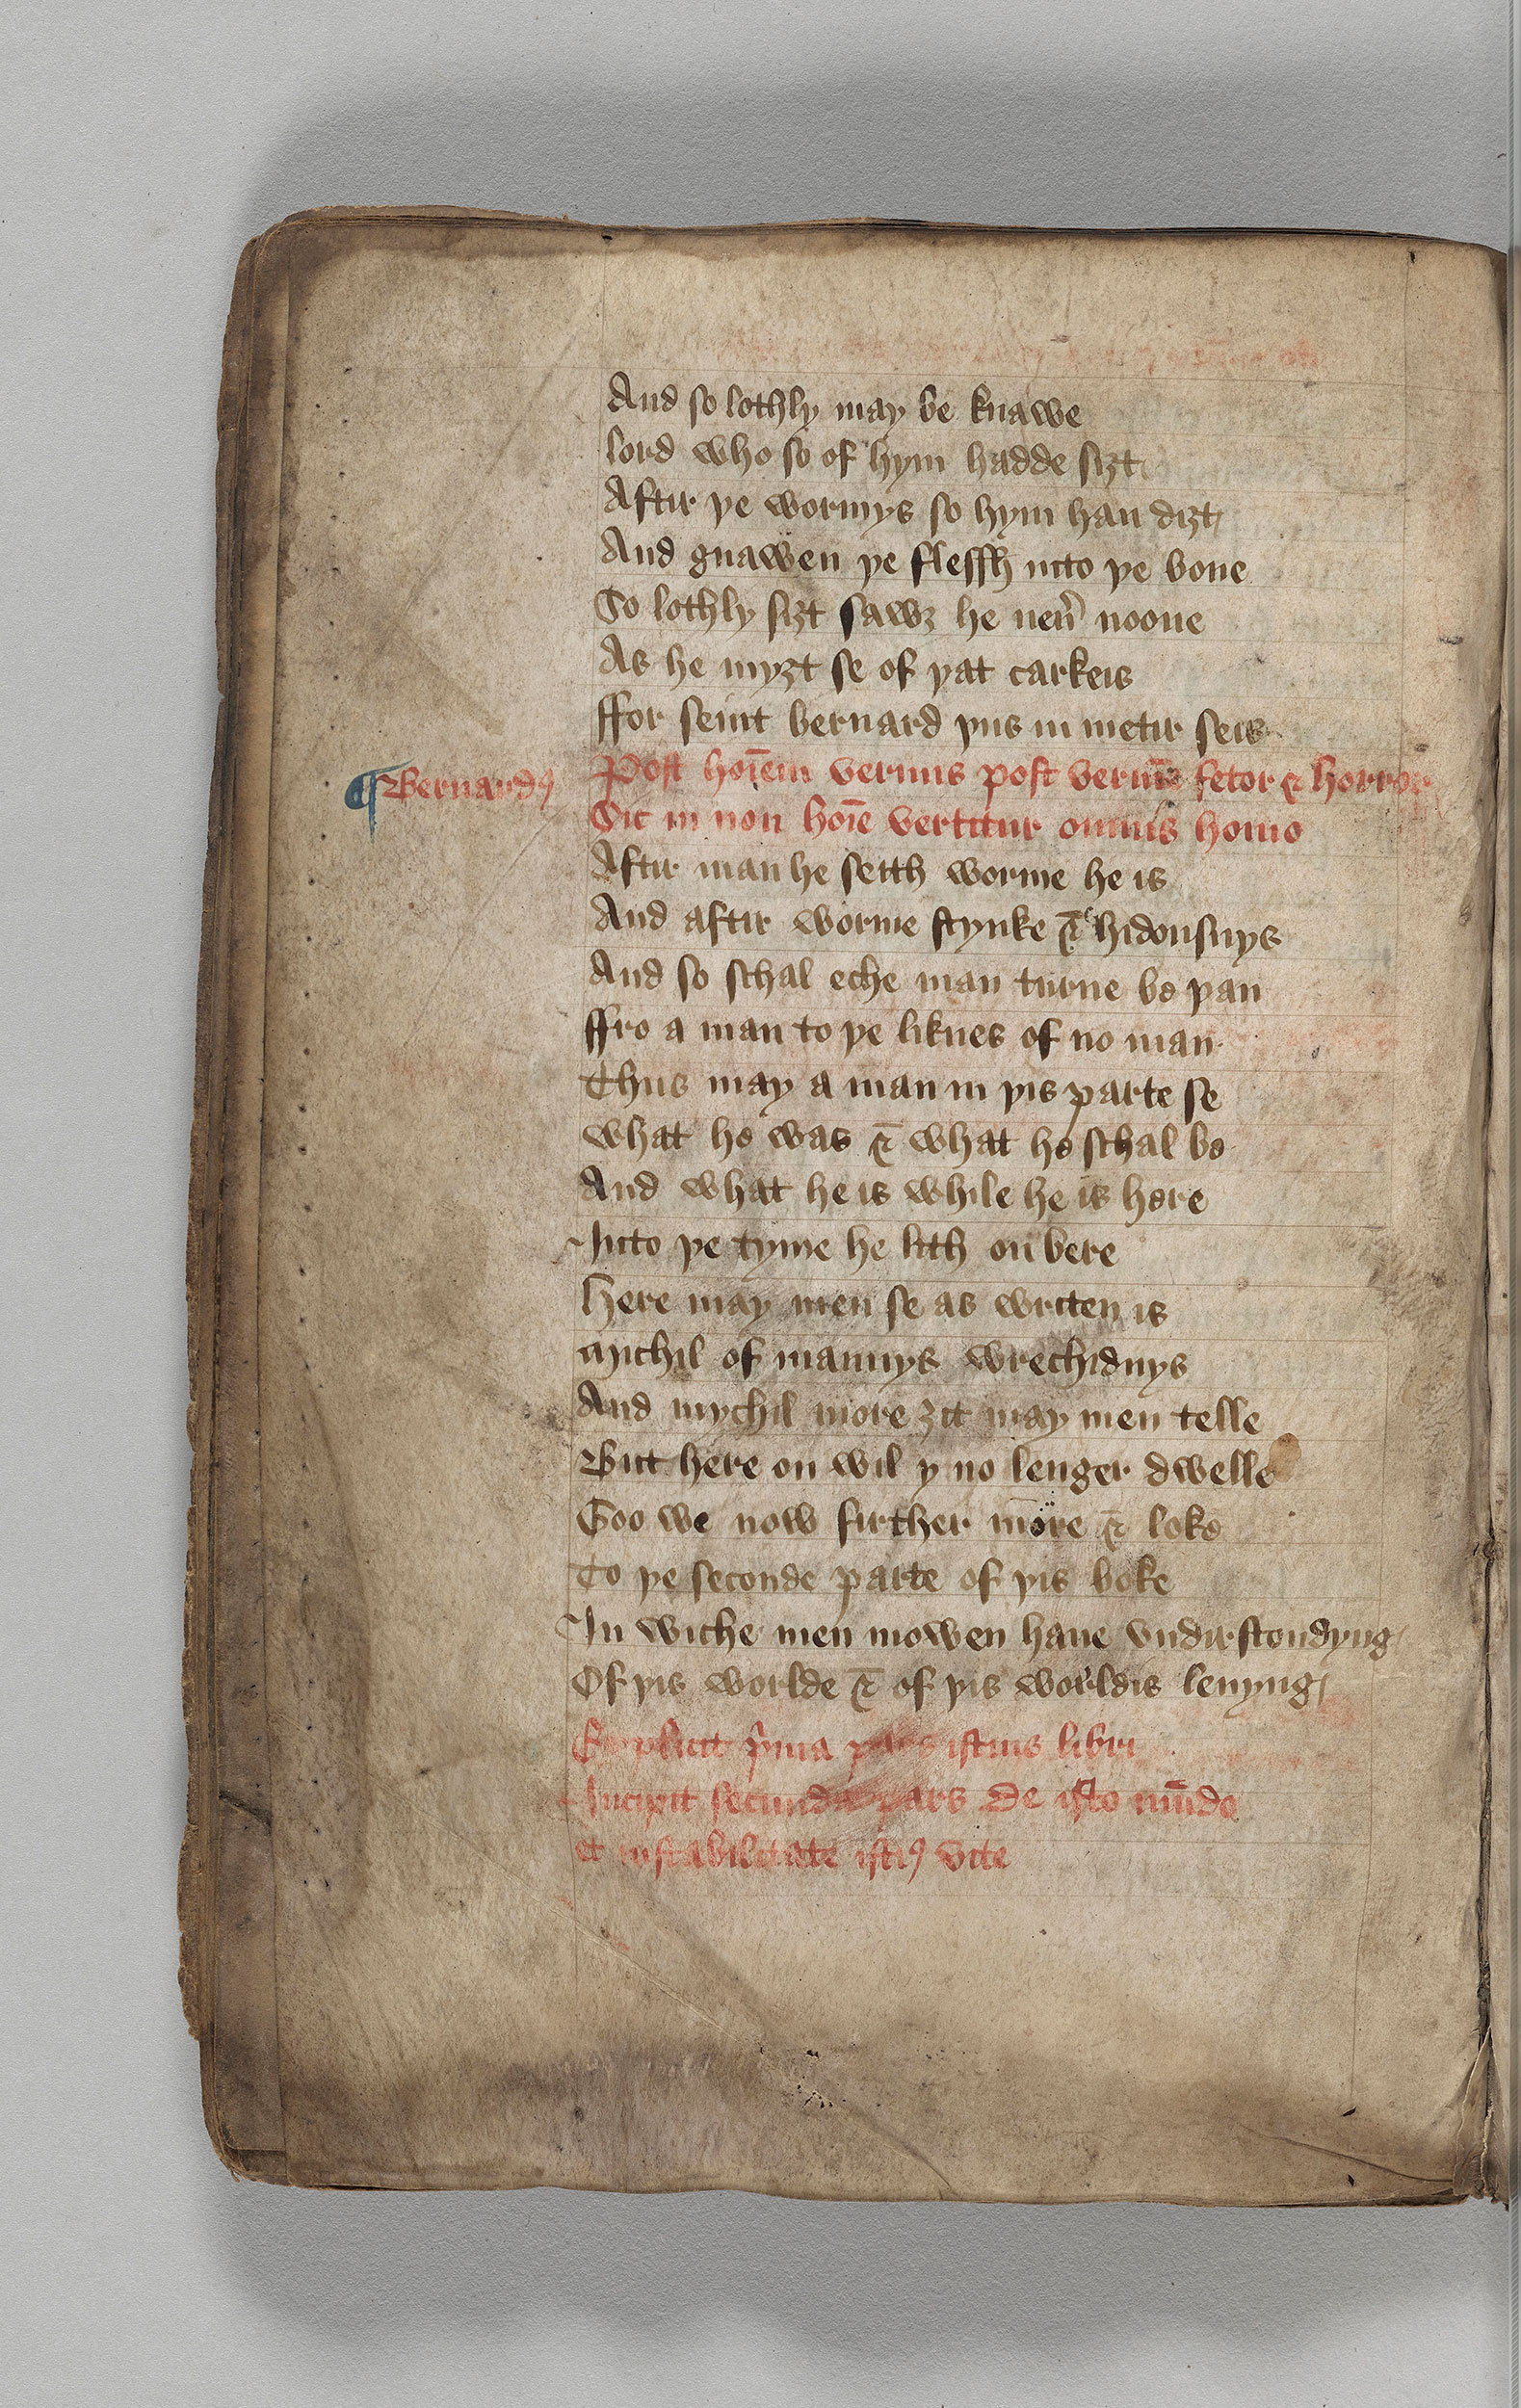 And so lothly may be knawe
lord who so of hym hadde siȝt
Aftir þe wormys so hym han diȝt
And gnawen þe flessh into þe bone
So lothly siȝt sawȝ he neu̾ noone
As he myȝt se of þat carkeis
ffor seint bernard þus in metir seis
¶ Bernardꝰ
Post hoı̄em vermis post verm̄e fetor & horror
Sic in non hoı̄e vertitur omnis homo
Aftir man he seith worme he is
And aftir worme stynke & hidousnys
And so schal eche man turne be þan
ffro a man to þe liknes of no man
Thus may a man in þis parte se
what he was & what he schal be
And what he is while he is here
Into þe tyme he lith on bere
Here may men se as writen is
Michil of mannys wrechidnys
And mychil more ȝit may men telle
But here on wil y no lenger dwelle
Goo we now firther more & loke
To þe seconde parte of þis boke
In wiche men mowen haue vndirstondyng
Of þis worlde & of þis worldis leuyng
Explicit pͥma pars istius libri
Incipit secunda pars De isto mūdo
et instabilitate istiꝰ vite